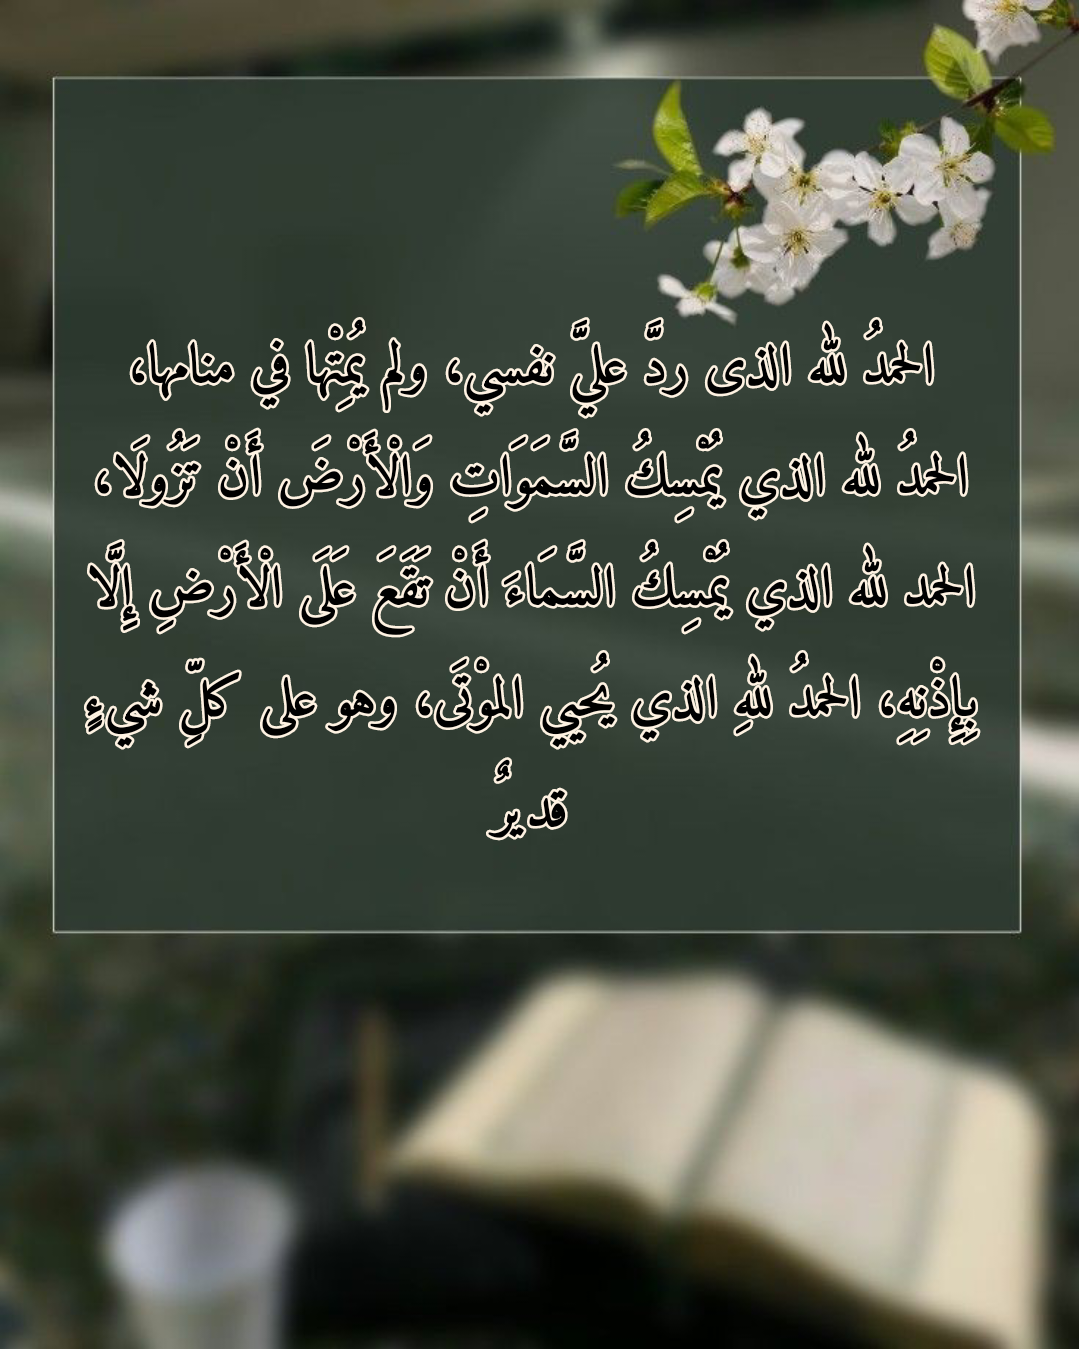 الحمدُ لله الذى ردَّ عليَّ نفسي، ولم يُمِتْها في منامها،
الحمدُ لله الذي يُمْسِكُ السَّمَوَاتِ وَالْأَرْضَ أَنْ تَزُولَا،
الحمد لله الذي يُمْسِكُ السَّمَاءَ أَنْ تَقَعَ عَلَى الْأَرْضِ إِلَّا
بِإِذْنِهِ، الحمدُ للهِ الذي يُحيِي الموْتَى، وهو على كلِّ شيءٍ
قديرٌ